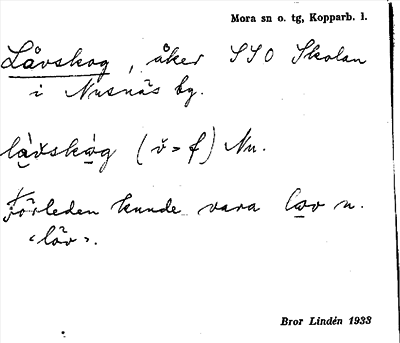 Mora sn o. tg, Kopparb. l.
Låvskog, åker SSO Skolan
i Nusnäs by.
làv̌skòg (v̌ = f) Nu.
Förleden kunde vara lov n.
‹löv›.
Bror Lindén 1933